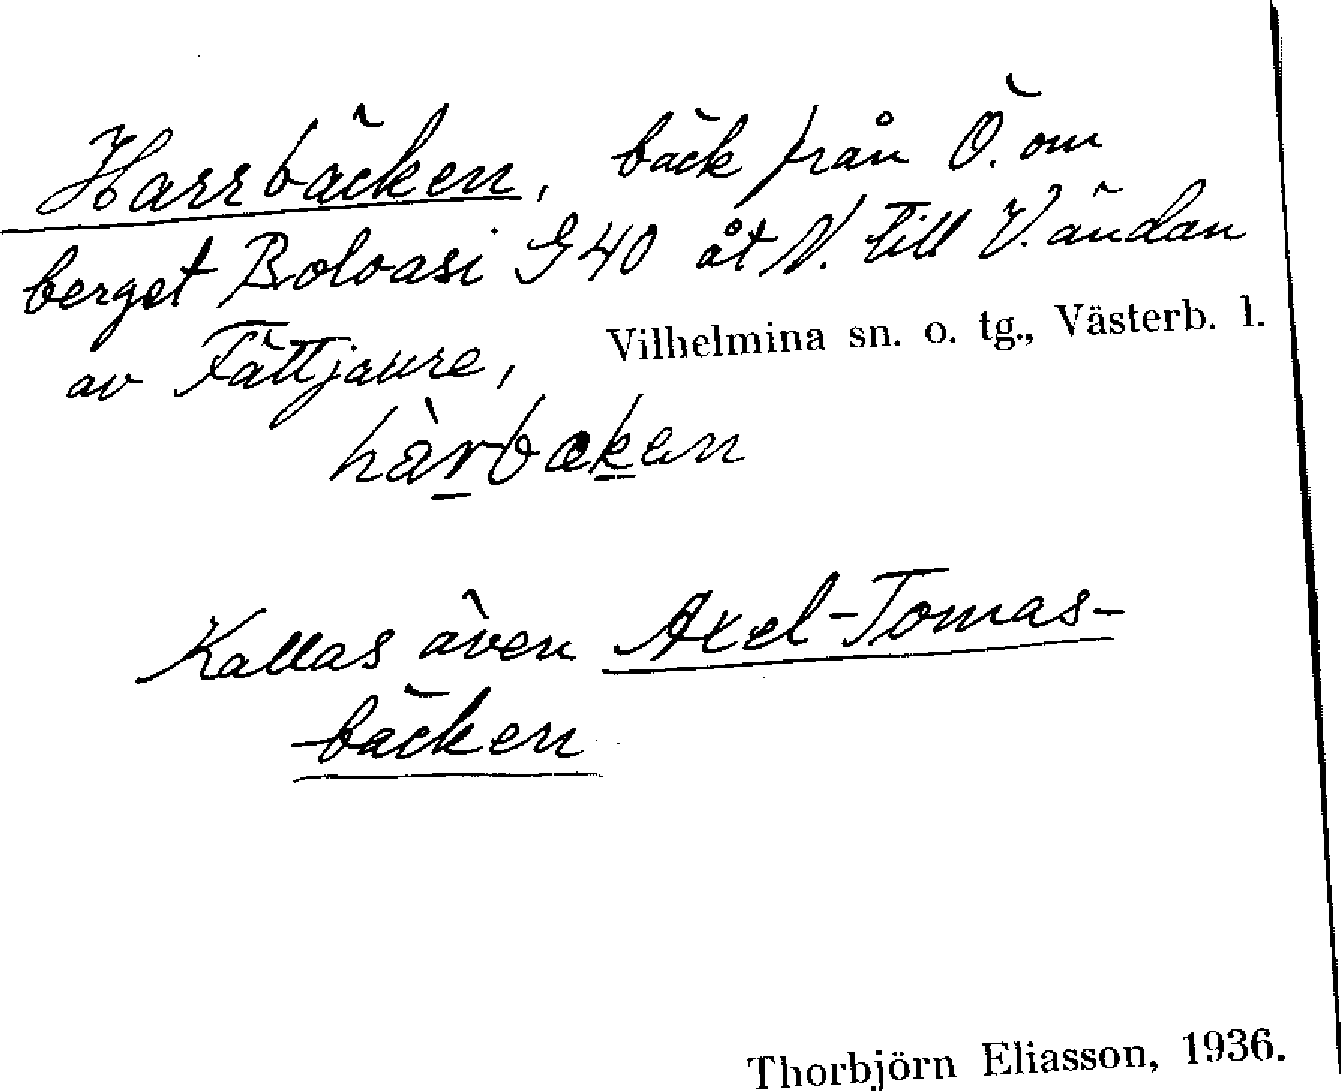 Harrbäcken, bäck från Ö. om
berget Bolvasi G40 åt N. till V. ändan
av Fättjaure, Vilhelmina sn. o. tg., Västerb. l.
hàrbækæn
Kallas även Axel-Tomas-
bäcken
Thorbjörn Eliasson, 1936.